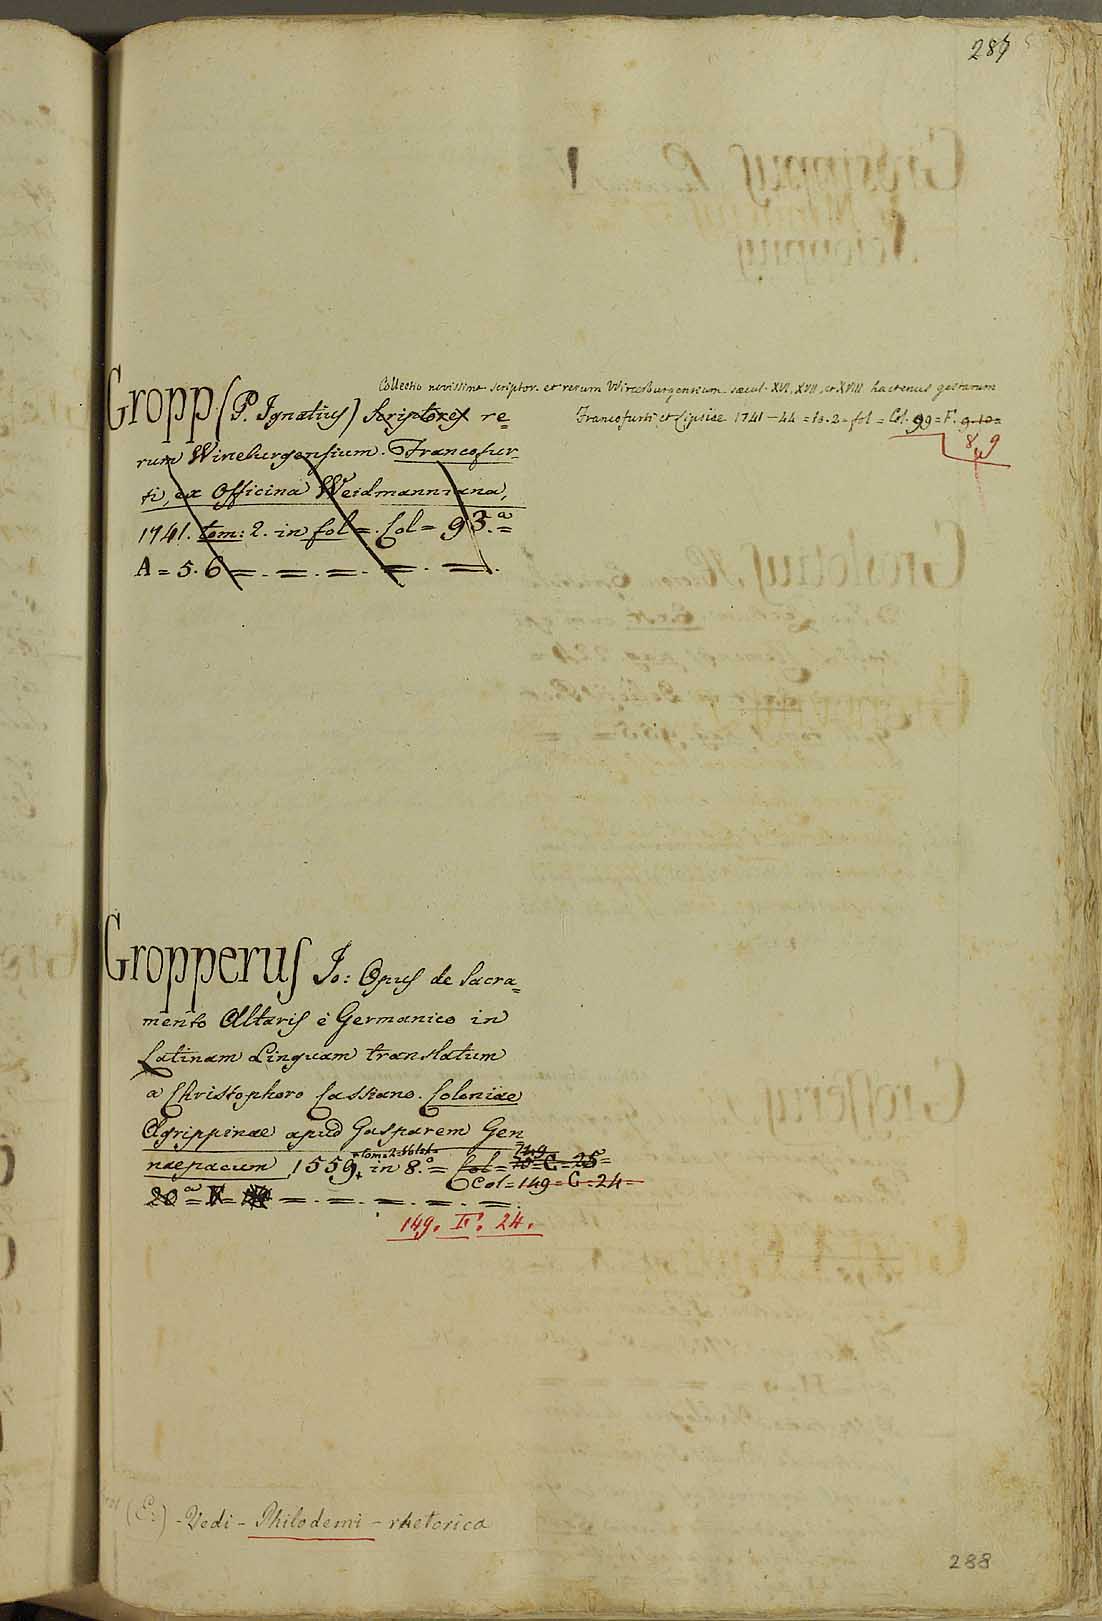 287
Collectio novissima scriptor. et rerum Wirceburgensium saecul. XVI, XVII, et XVIII hactenus gestarum
Francofurti et Lipsiae 1741-44 = to. 2 = fol = Col. 99 = F. 9-10 =
8, 9
Gropp (P. Ignatius) Scriptores re=
rum Wirceburgensium. Francofur
ti, ex Officina Weidmanniana,
1741. tom: 2. in fol = Col = 93.ª =
A = 5. 6 = . = . = . = . = .
Gropperus Jo: Opus de Sacra=
mento Altaris è Germanico in
Latinam Linguam translatum
a Christophoro Cassiano. Coloniae
Agrippinae apud Gasparem Gen
naepaeum 1559. in 8.º = Col = C = 25 =
149
Col = 149 = C = 24 =
20ª = = . = . = . = . = .
149. F. 24.
- Vedi - Philodemi - rhetorica
288